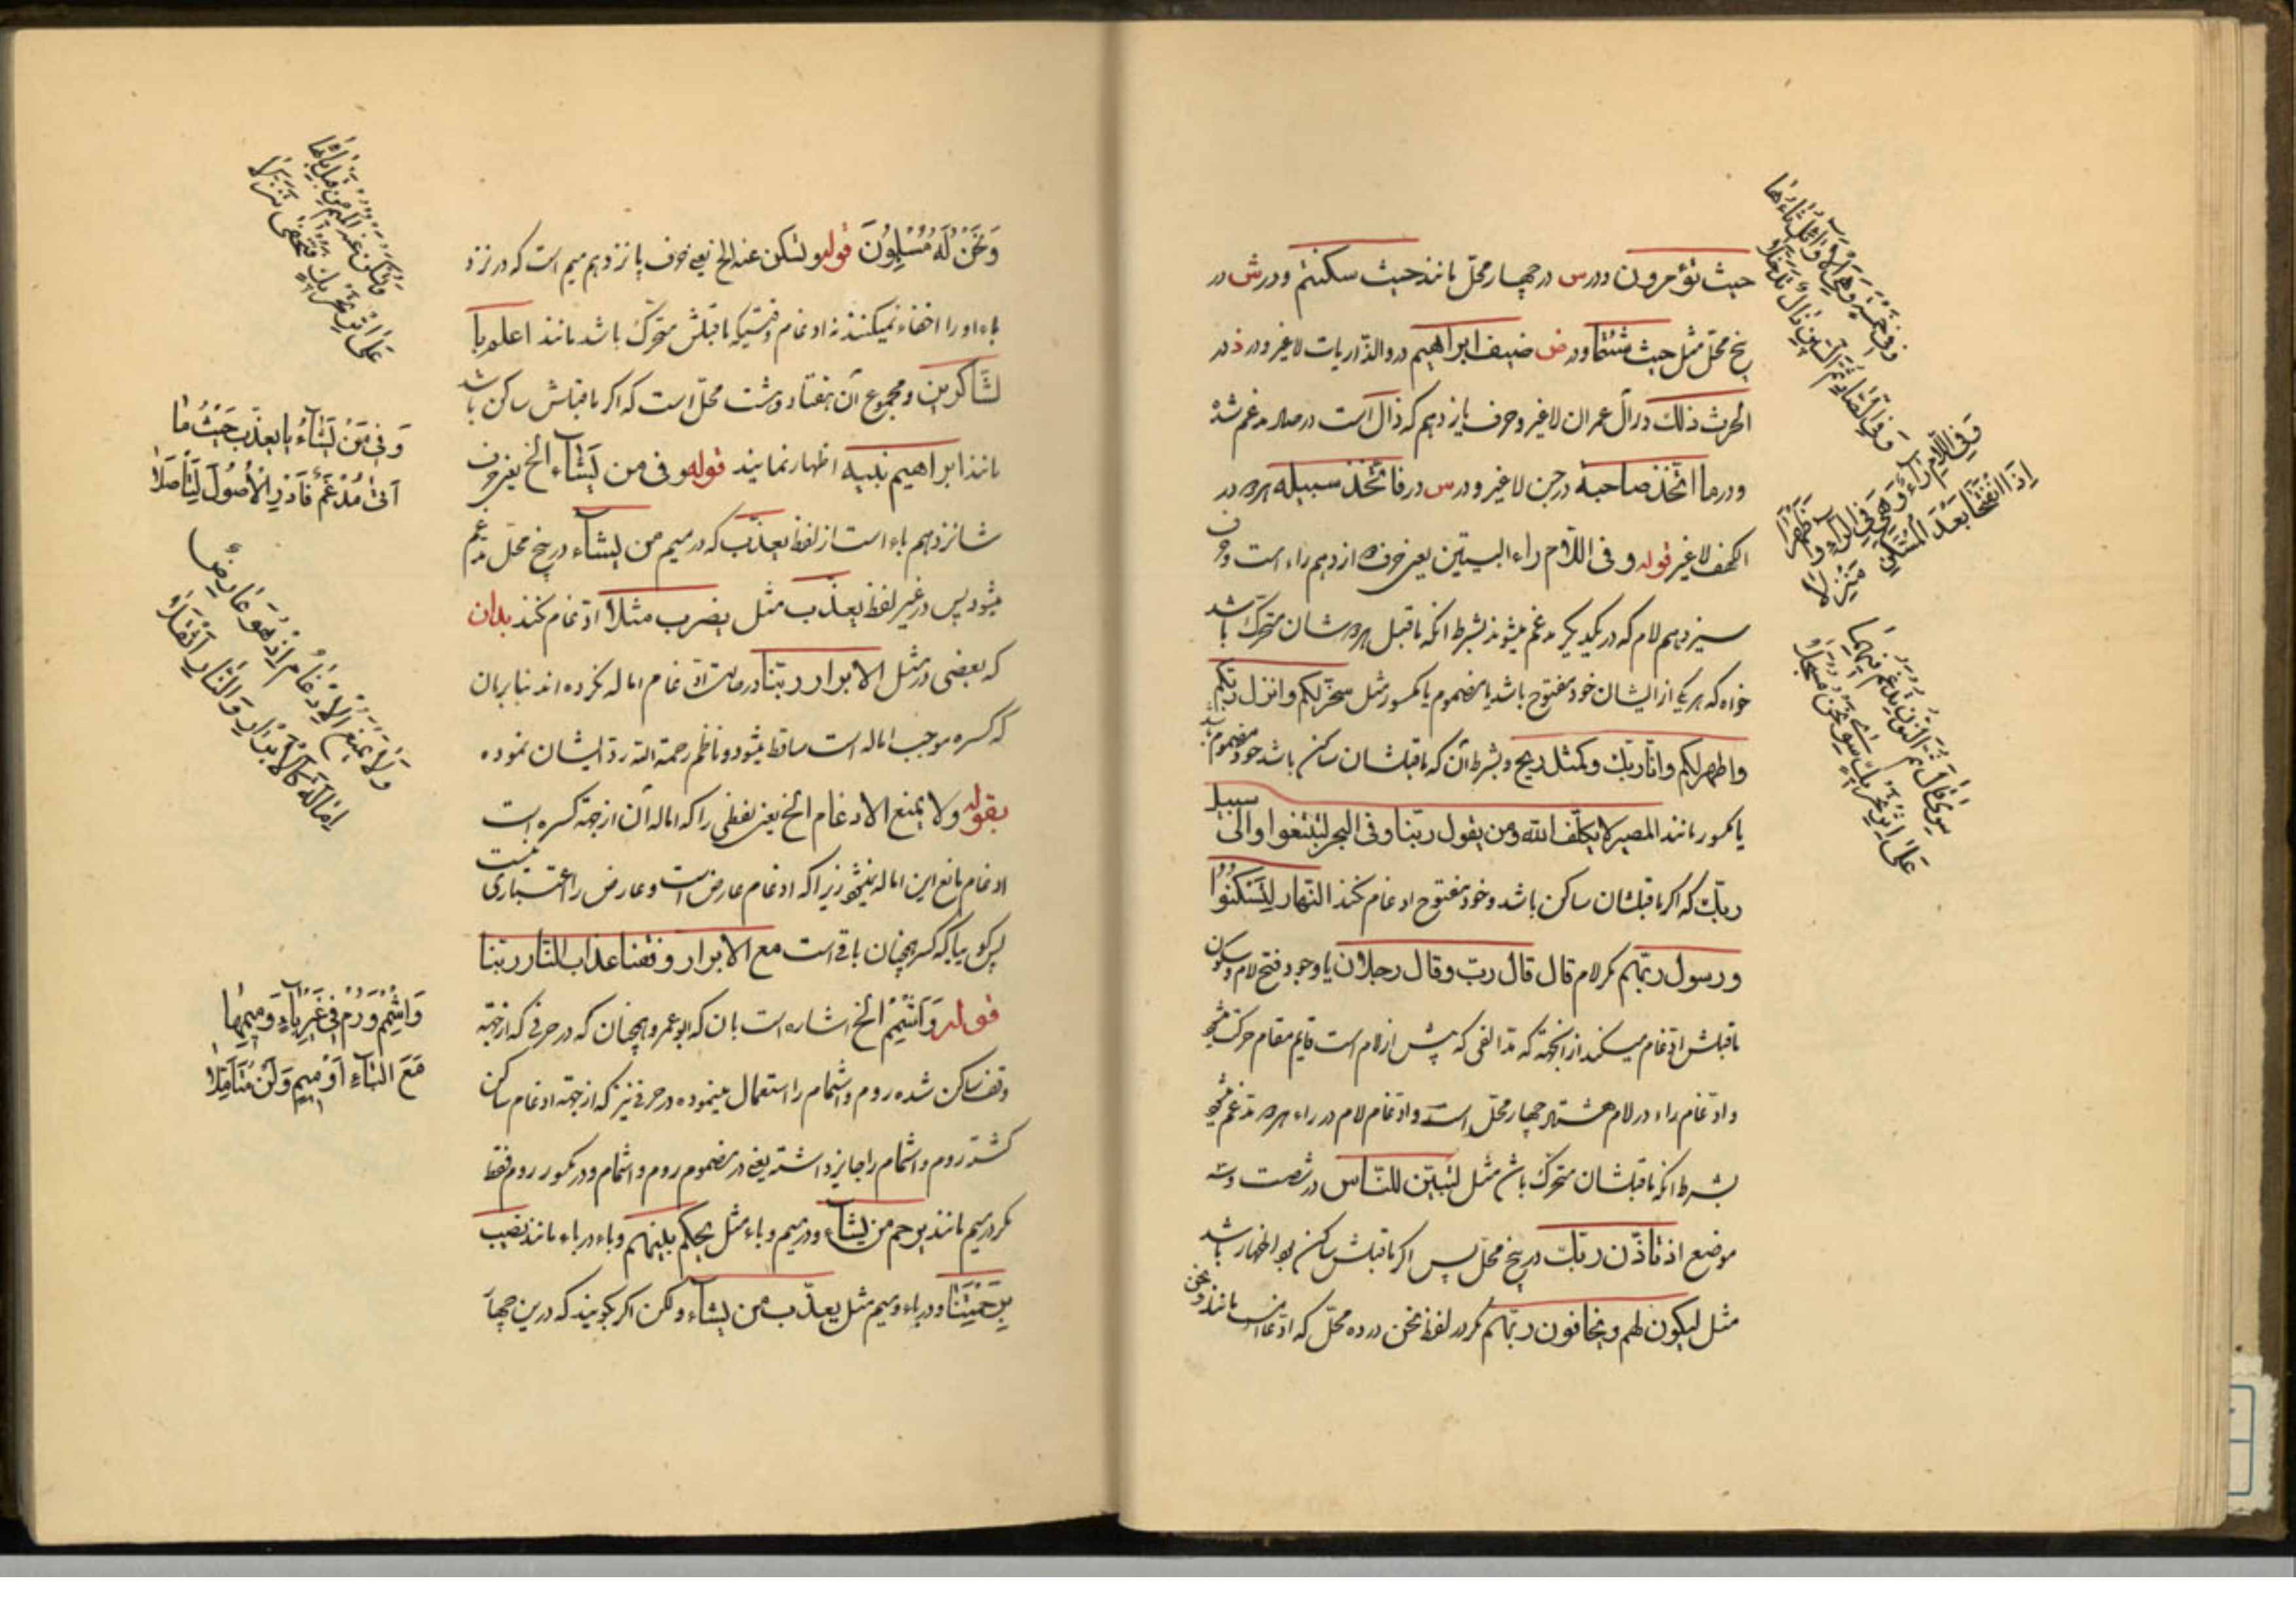 حیث تؤمرون ودر س در چهار محلّ مانند حیث سکنتم ودر ش در
پنج محلّ مثل حیث شئتما ودر ض ضیف ابراهیم در والذّاریات لاغیر ودر ذ در
الحرث ذلك در آل عمران لاغیر وحرف یازدهم که ذال است در صاد مدغم شد
ودر ما اتّخذ صاحبة در جن لاغیر ودر س در فاتّخذ سبیله هر دو در
الکهف لاغیر قوله وفی اللّام راء البیتین یعنی حرف دوازدهم راء است وحرف
سیزدهم لام که در یکدیگر مدغم میشوند بشرط انکه ماقبل هر دو شان متحرّك باشد
خواه که هر یک از ایشان خود مفتوح باشد یا مضموم یا مکسور مثل سخّر لکم وانزل ربّکم
واطهر لکم وانّا ربّك وکمثل ریح وبشرط آن که ماقبلشان ساکن باشد خود مضموم باشد
یا مکسور مانند المصیر لا یکلّف الله ومن یقول ربّنا وفی البحر لتبتغوا والی سبیل
ربّك که اکر ماقبلشان ساکن باشد وخود مفتوح ادغام نکنند النّهار لِتَسْکُنُوا
ورسول ربّهم مکر لام قال قال ربّ وقال رجلان با وجود فتح لام وسکون
ماقبلش ادغام میکنند از انجهة که مدّ الفی که پیش از لام است قایم مقام حرکت میشود
وادغام راء در لام هشتاد چهار محلّ است وادغام لام در راء هر دو مدغم میشود
بشرط انکه ماقبلشان متحرّك باشد مثل لتبیّن للنّاس در شصت وسه
موضع اذ تاذّن ربّك در پنج محلّ پس اکر ماقبلش ساکن بود اظهار باشد
مثل لیکون لهم ویخافون ربّهم مکر در لفظ نحن در ده محلّ که ادغام است مانند ونحن
وَفِی خَمْسَةٍ وَهْیَ الْاَوَائِلُ ثَاؤُهَا
وَفِی الصَّادِ ثُمَّ السِّینِ ذَالٌ تَدَخَّلَا
وَفِی اللَّامِ رَاءٌ وَهْیَ فِی الرَّاءِ وَاُظْهِرَا
اِذَا انْفَتَحَا بَعْدَ الْمُسَکَّنِ مُنْزَلَا
سِوَی قَالَ ثُمَّ النُّونُ تُدْغَمُ فِیهِمَا
عَلَی اِثْرِ تَحْرِیكٍ سِوَی نَحْنُ مُسْجَلَا
وَنَحْنُ لَهُ مُسْلِمُونَ قوله وتسکن عنه الخ یعنی حرف پانزدهم میم است که در نزد
باء او را اخفاء میکنند نه ادغام وقتیکه ماقبلش متحرّك باشد مانند اعلم با
لشّاکرین ومجموع آن هفتاد وهشت محلّ است که اکر ماقبلش ساکن باشد
مانند ابراهیم بنیه اظهار نمایند قوله وفی من یشاء الخ یعنی حرف
شانزدهم باء است از لفظ یعذّب که در میم من یشاء در پنج محلّ مدغم
میشود پس در غیر لفظ یعذّب مثل یضرب مثلا ادغام نکنند بدان
که بعضی در مثل الابرار ربّنا در حالت ادغام اماله نکرده اند بنابر ان
که کسره موجب اماله است ساقط میشود وناظم رحمة الله ردّ ایشان نموده
بقوله ولا یمنع الادغام الخ یعنی لفظی را که اماله آن از جهة کسره است
ادغام مانع این اماله نمیشود زیرا که ادغام عارض است وعارض را اعتباری نیست
پس کویا که کسره همچنان باقی است مع الابرار وقنا عذاب النّار ربّنا
قوله وَاَشْمِمْ الخ اشاره است بان که ابوعمرو همچنان که در حرفی که از جهة
وقف ساکن شده روم واشمام را استعمال مینموده در حرفی نیز که از جهة ادغام ساکن
کشته روم واشمام را جایز داشته یعنی در مضموم روم واشمام ودر مکسور روم فقط
مکر در میم مانند یرحم من یشاء ودر میم وباء مثل یحکم بینهم وباء در باء مانند نصیب
بِرَحْمَتِنَا ودر باء ومیم مثل یعذّب من یشاء ولکن اکر بکویند که درین چهار
وَتُسْکَنُ عَنْهُ الْمِیمُ مِنْ قَبْلِ بَائِهَا
عَلَی اِثْرِ تَحْرِیكٍ فَتَخْفَی تَنَزُّلَا
وَفِی مَنْ یَشَاءُ بَا یُعَذِّبُ حَیْثُ مَا
اَتَی مُدْغَمٌ فَادْرِ الْاُصُولَ لِتَأْصُلَا
وَلَا یَمْنَعُ الْاِدْغَامُ اِذْ هُوَ عَارِضٌ
اِمَالَةَ کَالْاَبْرَارِ وَالنَّارِ اَثْقَلَا
وَاَشْمِمْ وَرُمْ فِی غَیْرِ بَاءٍ وَمِیمِهَا
مَعَ الْبَاءِ اَوْ مِیمٍ وَکُنْ مُتَأَمِّلَا